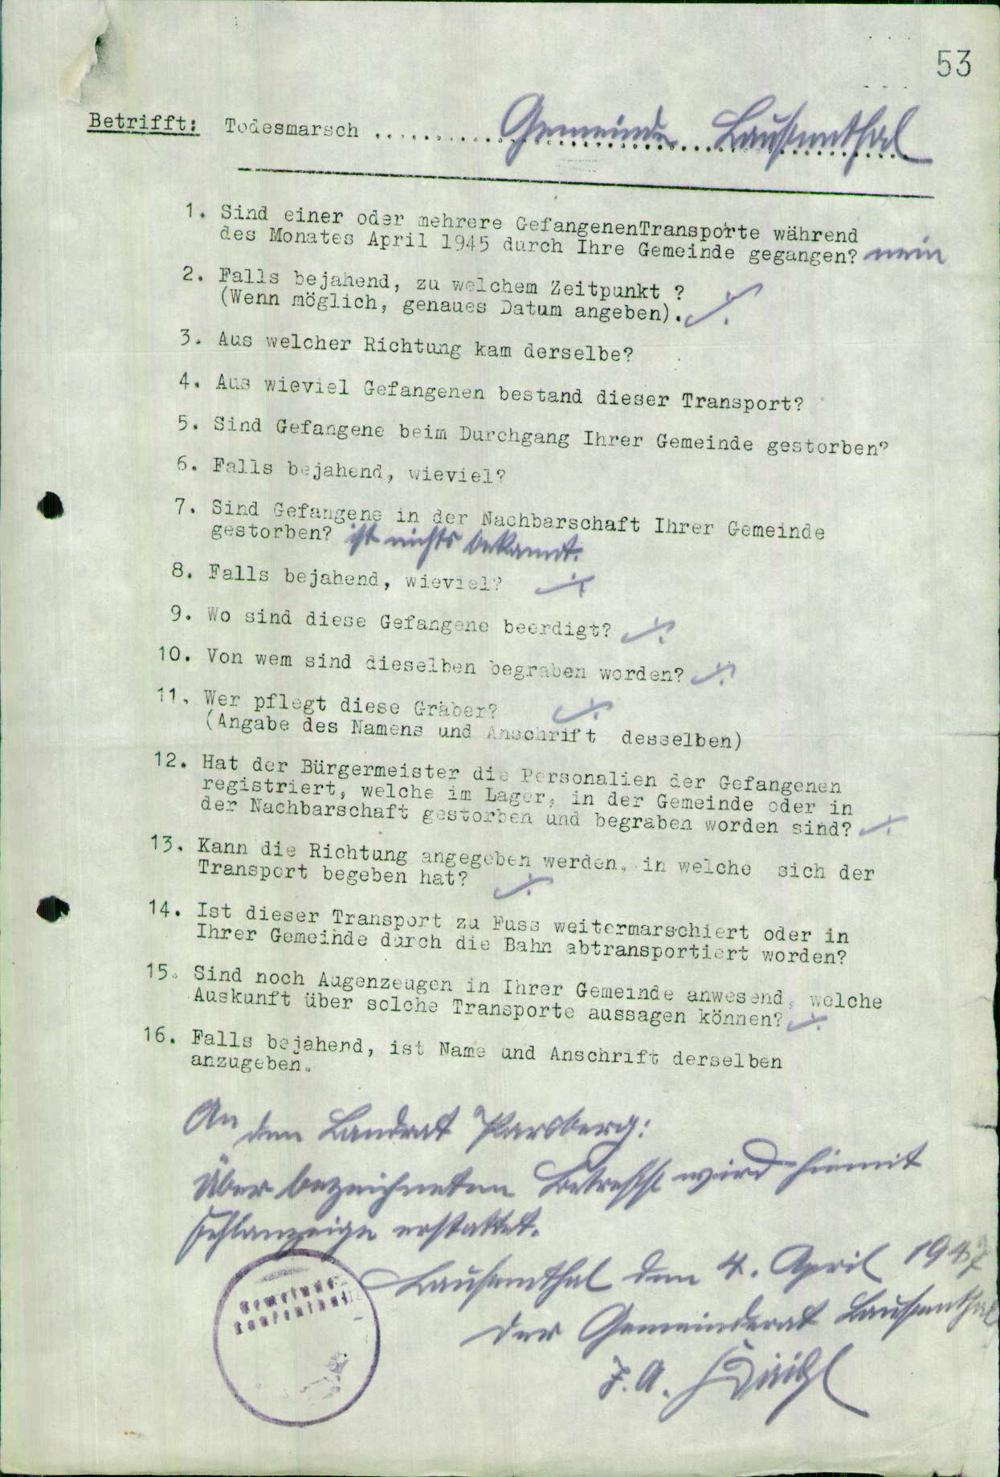 53
Betrifft: Todesmarsch .......... Gemeinde Laufenthal
1. Sind einer oder mehrere GefangenenTransporte während
des Monates April 1945 durch Ihre Gemeinde gegangen? nein
2. Falls bejahend, zu welchem Zeitpunkt ?
(Wenn möglich, genaues Datum angeben). ./.
3. Aus welcher Richtung kam derselbe?
4. Aus wieviel Gefangenen bestand dieser Transport?
5. Sind Gefangene beim Durchgang Ihrer Gemeinde gestorben?
6. Falls bejahend, wieviel?
7. Sind Gefangene in der Nachbarschaft Ihrer Gemeinde
gestorben? ist nichts bekannt.
8. Falls bejahend, wieviel? ./.
9. Wo sind diese Gefangene beerdigt? ./.
10. Von wem sind dieselben begraben worden? ./.
11. Wer pflegt diese Gräber? ./.
(Angabe des Namens und Anschrift desselben)
12. Hat der Bürgermeister die Personalien der Gefangenen
registriert, welche im Lager, in der Gemeinde oder in
der Nachbarschaft gestorben und begraben worden sind? ./.
13. Kann die Richtung angegeben werden, in welche sich der
Transport begeben hat? ./.
14. Ist dieser Transport zu Fuss weitermarschiert oder in
Ihrer Gemeinde durch die Bahn abtransportiert worden?
15. Sind noch Augenzeugen in Ihrer Gemeinde anwesend, welche
Auskunft über solche Transporte aussagen können? ./.
16. Falls bejahend, ist Name und Anschrift derselben
anzugeben.
An den Landrat Parsberg:
Über bezeichneten Betreffs wird hiemit
Fehlanzeige erstattet.
Gemeinde
Laufenthal
Laufenthal den 4. April 1947
Der Gemeinderat Laufenthal
J. A.